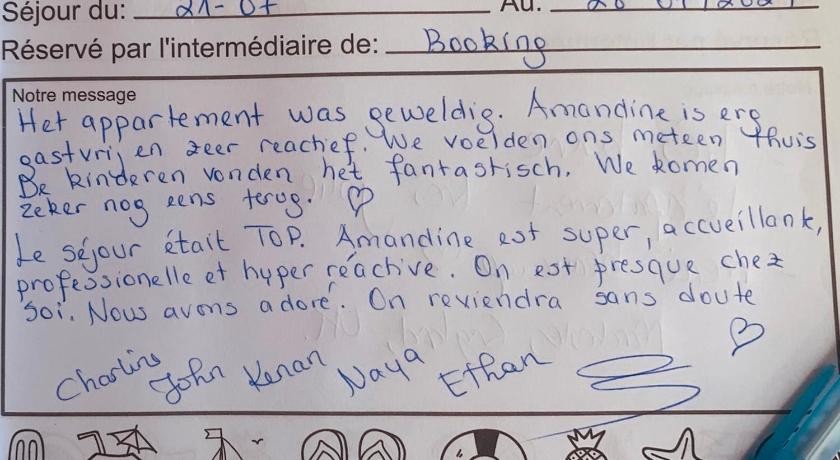 Séjour du: 21-07 Au:
Réservé par l'intermédiaire de: Booking
Notre message
Het appartement was geweldig. Amandine is erg
gastvrij en zeer reachief. We voelden ons meteen thuis
De kinderen vonden het fantastisch. We komen
zeker nog eens terug. ♡
Le séjour était TOP. Amandine est super, accueillank,
professionelle et hyper réactive. On est presque chez
soi. Nous avons adoré. On reviendra sans doute
♡
John Kenan Naya Ethan